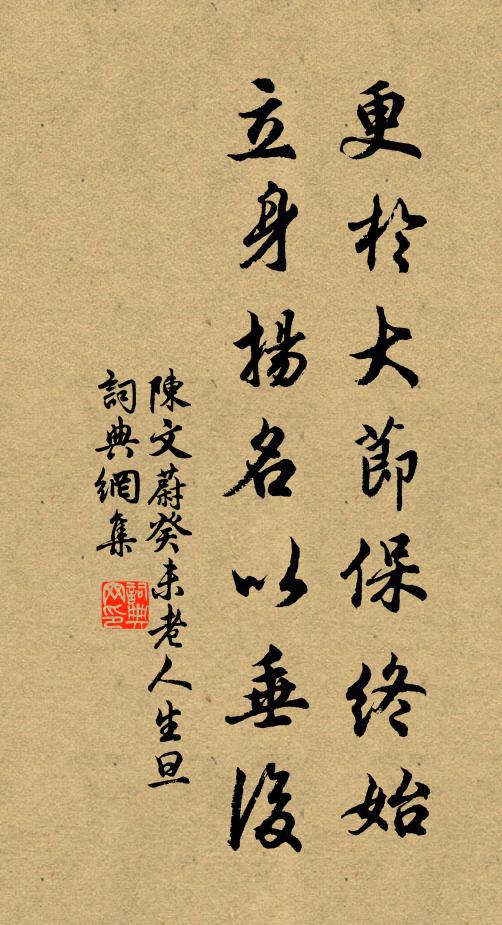 更於大節保終始
立身揚名以垂後
陳文蔚癸未老人生旦
詞典網集
詞典网印